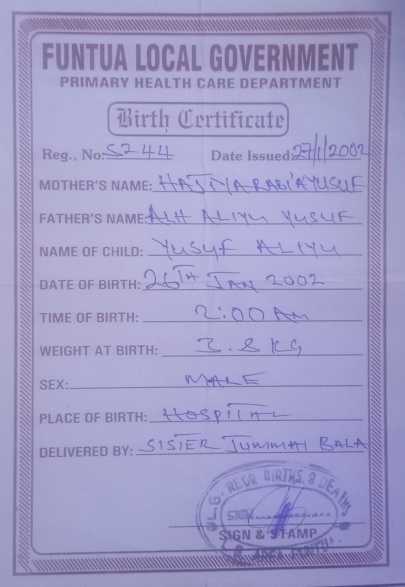 FUNTUA LOCAL GOVERNMENT
PRIMARY HEALTH CARE DEPARTMENT
Birth Certificate
Reg., No: 5244 Date Issued: 27/1/2002
MOTHER'S NAME: HAJIYA RABI'A YUSUF
FATHER'S NAME: ALH ALIYU YUSUF
NAME OF CHILD: YUSUF ALIYU
DATE OF BIRTH: 26TH JAN 2002
TIME OF BIRTH: 2:00 AM
WEIGHT AT BIRTH: 3.8 KG
SEX: MALE
PLACE OF BIRTH: HOSPITAL
DELIVERED BY: SISTER JUMMAI BALA
BIRTHS & DEATHS
SIGN
SIGN & STAMP